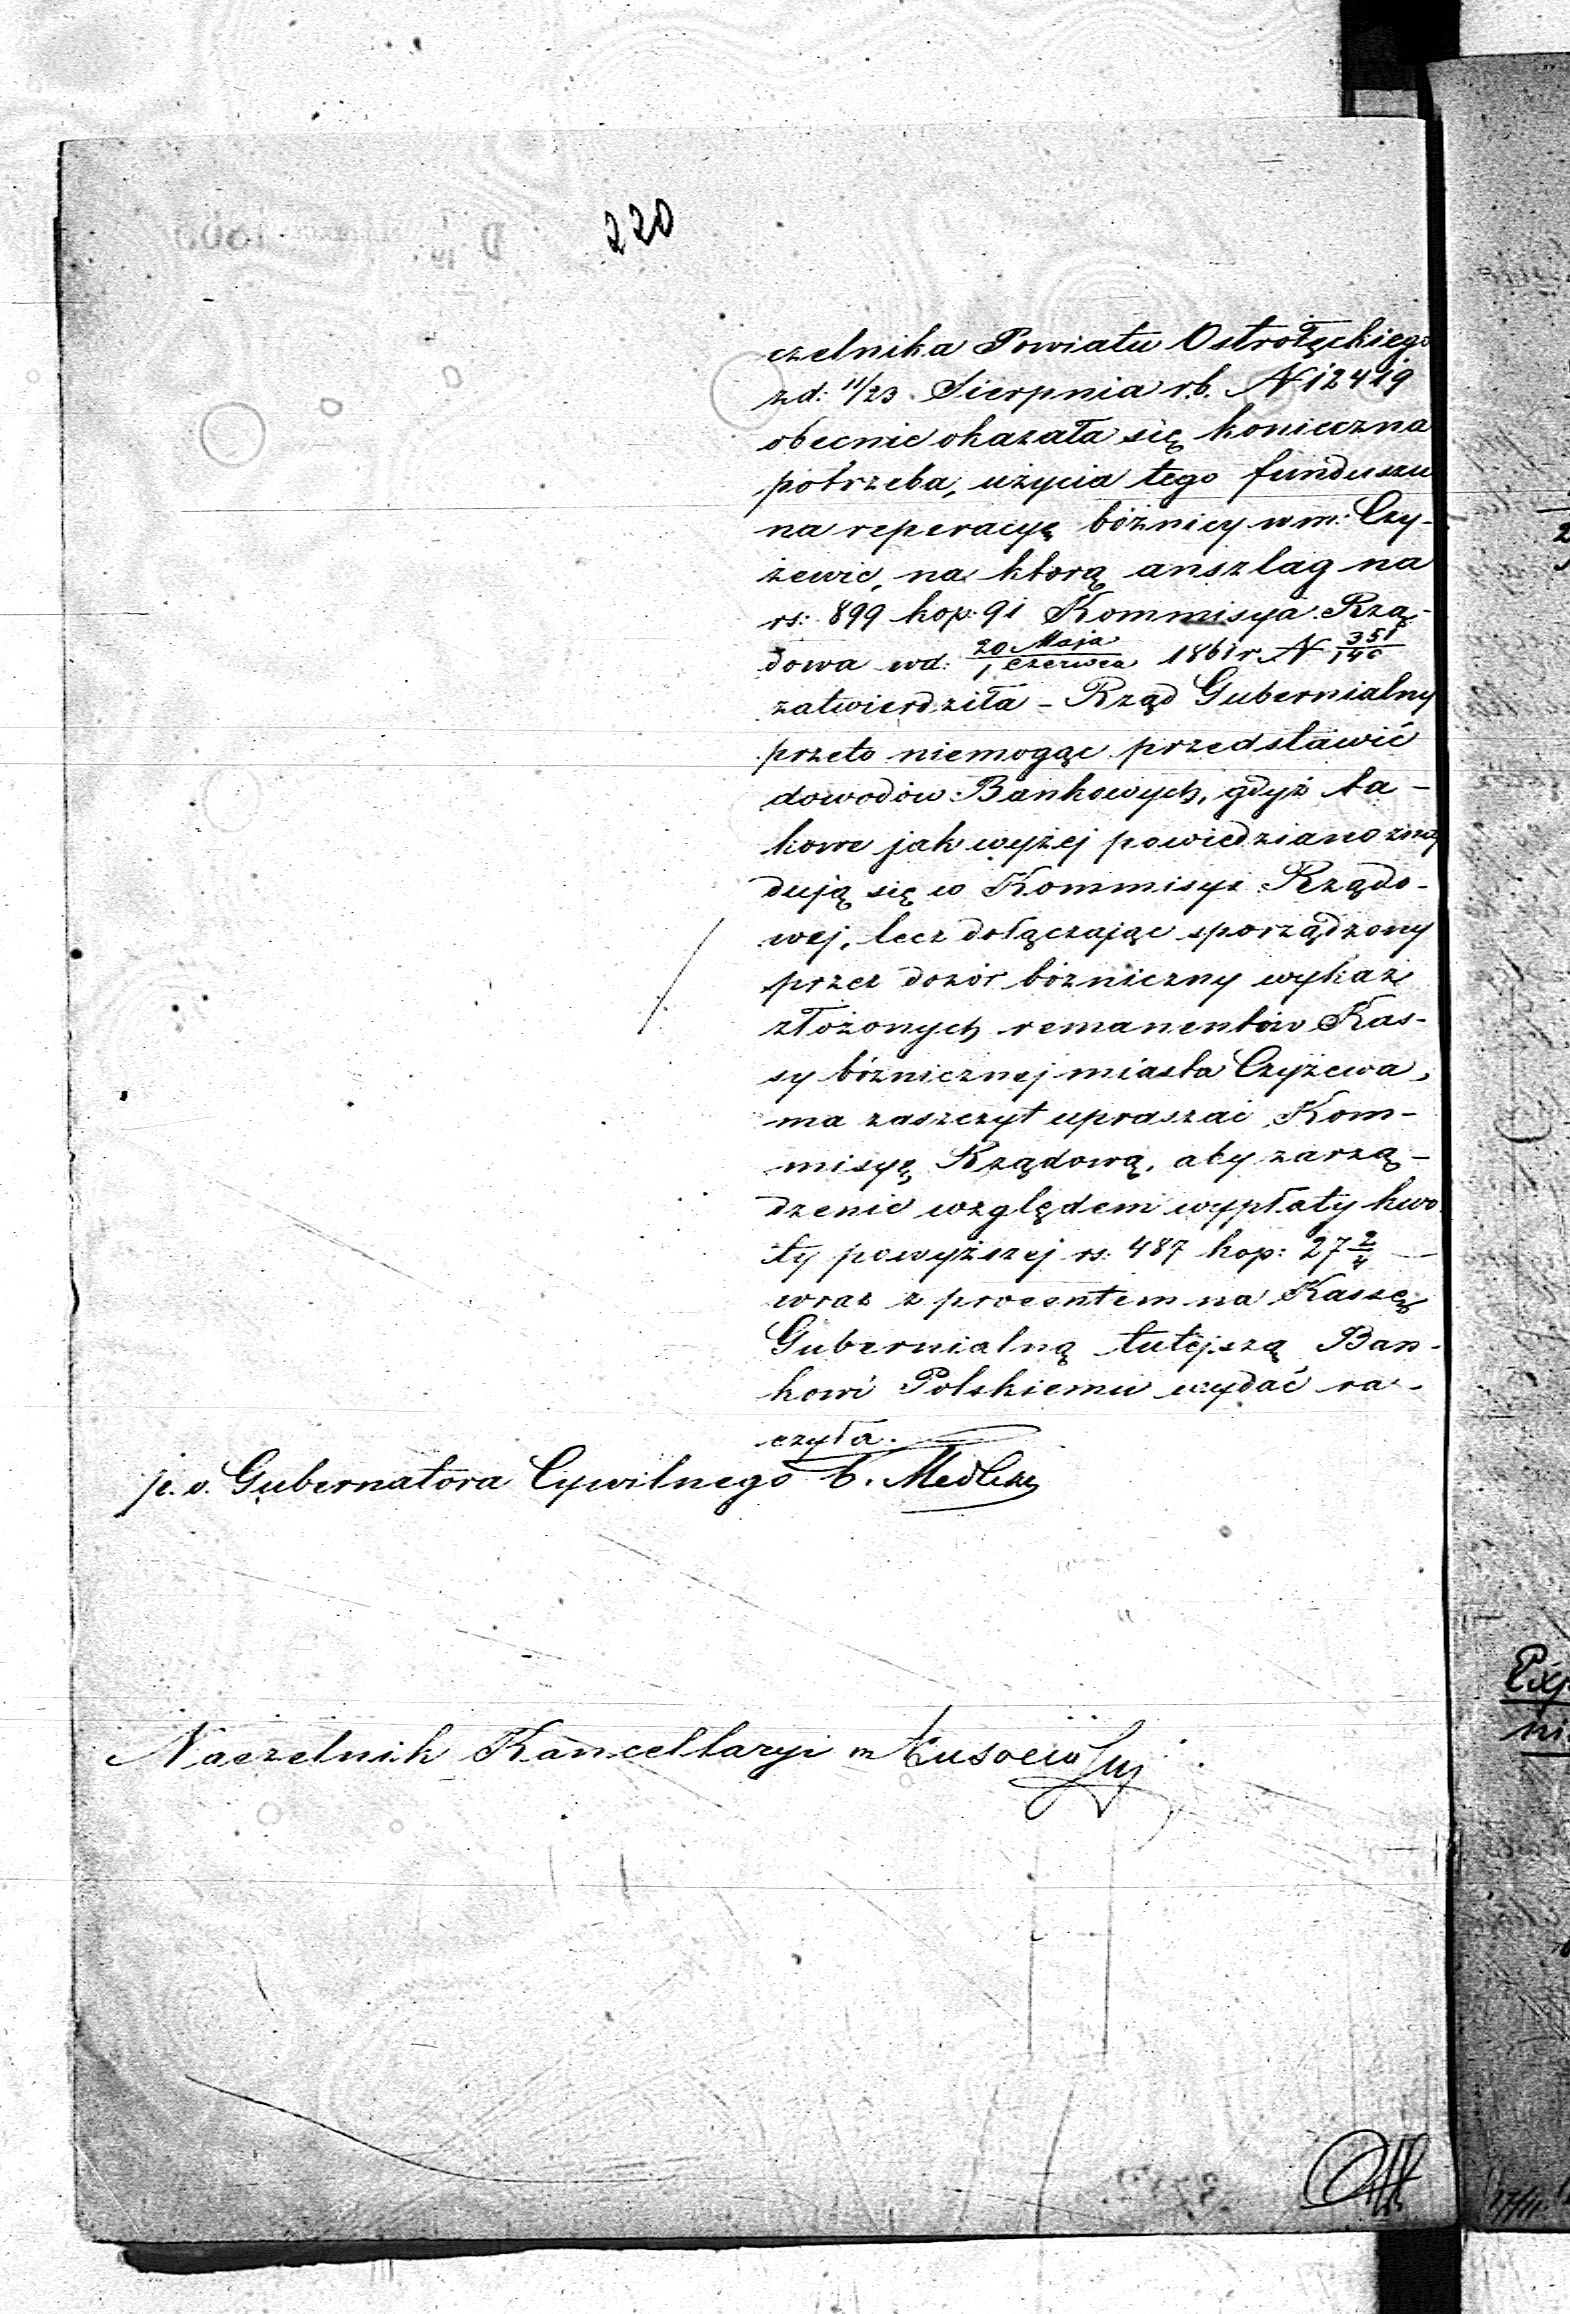 220
czelnika Powiatu Ostrołęckiego
z d: 11/23 Sierpnia r.b. N 12419
obecnie okazała się konieczna
potrzeba, użycia tego funduszu
na reperacyę bóżnicy w m: Czy-
żewie, na którą anszlag na
rs: 899 kop: 91 Kommisya Rzą-
dowa w d: 20 Maja/1 Czerwca 1861 r N 351/140
zatwierdziła - Rząd Gubernialny
przeto niemogąc przedstawić
dowodów Bankowych, gdyż ta-
kowe jak wyżej powiedziano znaj
dują się w Kommisyi Rządo-
wej, lecz dołączając sporządzony
przez dozór bóżniczny wykaz
złożonych remanentów Kas-
sy bóżnicznej miasta Czyżewa,
ma zaszczyt upraszać Kom-
misyę Rządową, aby zarzą-
dzenie względem wypłaty kwo
ty powyższej rs: 487 kop: 27 2/4
wraz z procentem na Kassę
Gubernialną tutejszą Ban-
kowi Polskiemu wydać ra-
czyła.
p. o. Gubernatora Cywilnego
Naczelnik Kancellaryi